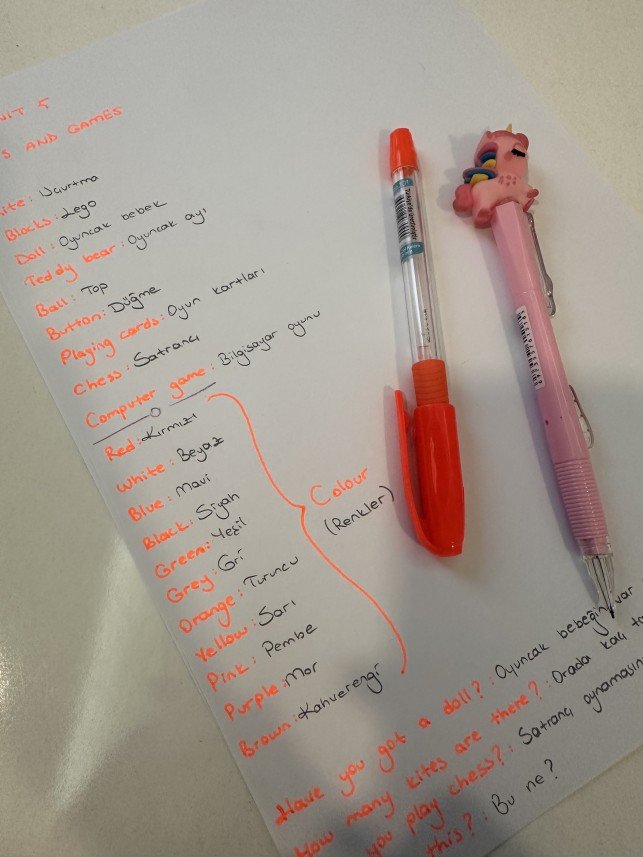 UNIT 5
S AND GAMES
ite: Uçurtma
Blocks: Lego
Doll: Oyuncak bebek
Teddy bear: Oyuncak ayı
Ball: Top
Button: Düğme
Playing cards: Oyun kartları
Chess: Satranç
Computer game: Bilgisayar oyunu
Red: Kırmızı
White: Beyaz
Blue: Mavi
Black: Siyah
Green: Yeşil
Grey: Gri
Orange: Turuncu
Yellow: Sarı
Pink: Pembe
Purple: Mor
Brown: Kahverengi
Colour
(Renkler)
Have you got a doll?: Oyuncak bebeğin var
How many kites are there?: Orada kaç
you play chess?: Satranç oynamasın
this?: Bu ne?